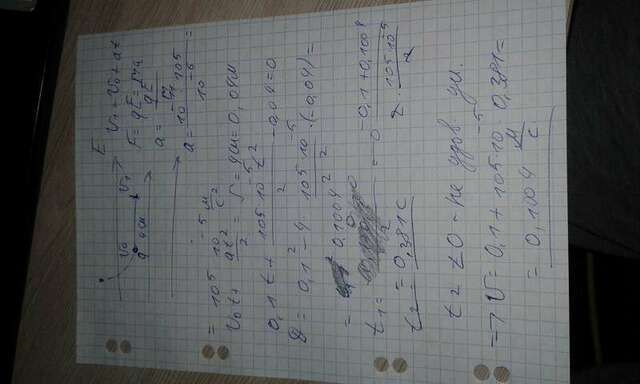 E V₁ = V₀ + at
F = qE = ma
a = qE
a = 10 · 105 =
10⁻⁶
V₀
V₁
4 см
= 105 · 10⁻⁵ м/с²
V₀t + at²/2 = S = 4 см = 0,04 м
0,1t + 105·10⁻⁵t²/2 - 0,04 = 0
D = 0,1² - 4 · 105·10⁻⁵/2 · (-0,04) =
= 0,1004²
t₁ = -0,1 + 0,1004 / 2 · 105·10⁻⁵/2
t₁ = 0,381 с
t₂ < 0 - не удов. ум.
=> V = 0,1 + 105·10⁻⁵ · 0,381 =
= 0,1004 м/с